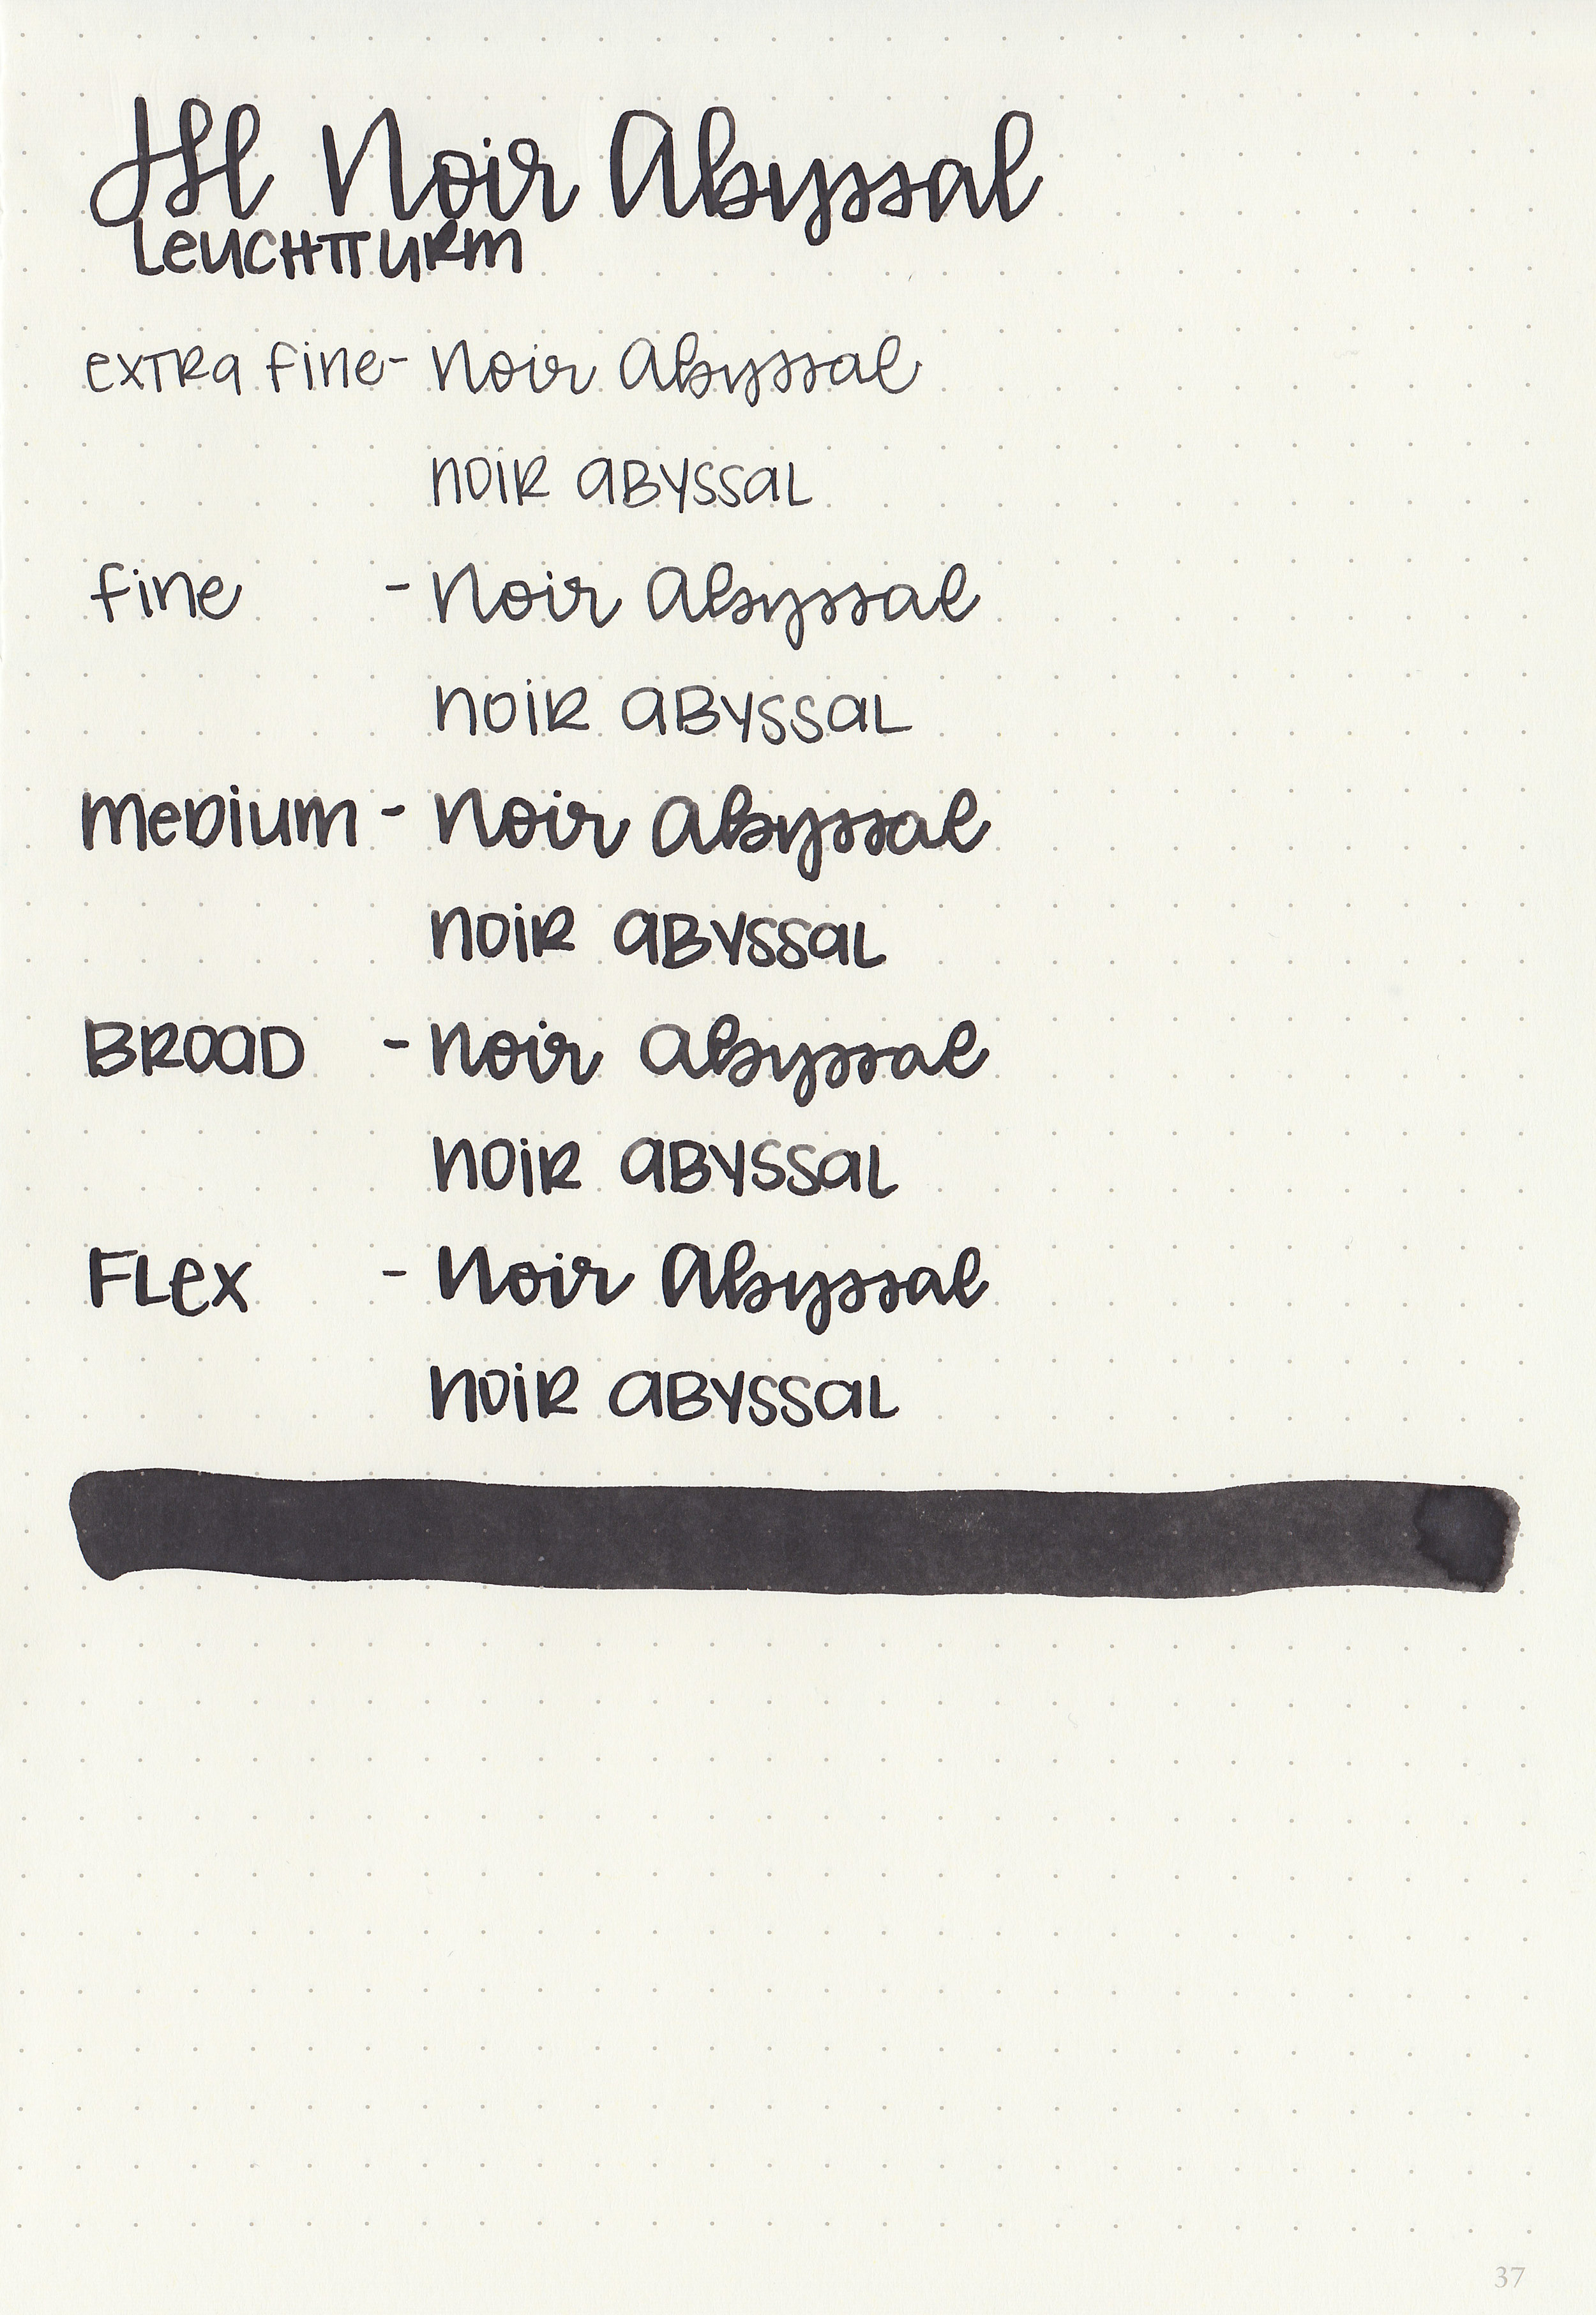 JH Noir Abyssal
Leuchtturm
extra fine - Noir Abyssal
noir abyssal
fine - Noir Abyssal
noir abyssal
medium - Noir Abyssal
noir abyssal
Broad - Noir Abyssal
noir abyssal
Flex - Noir Abyssal
noir abyssal
37